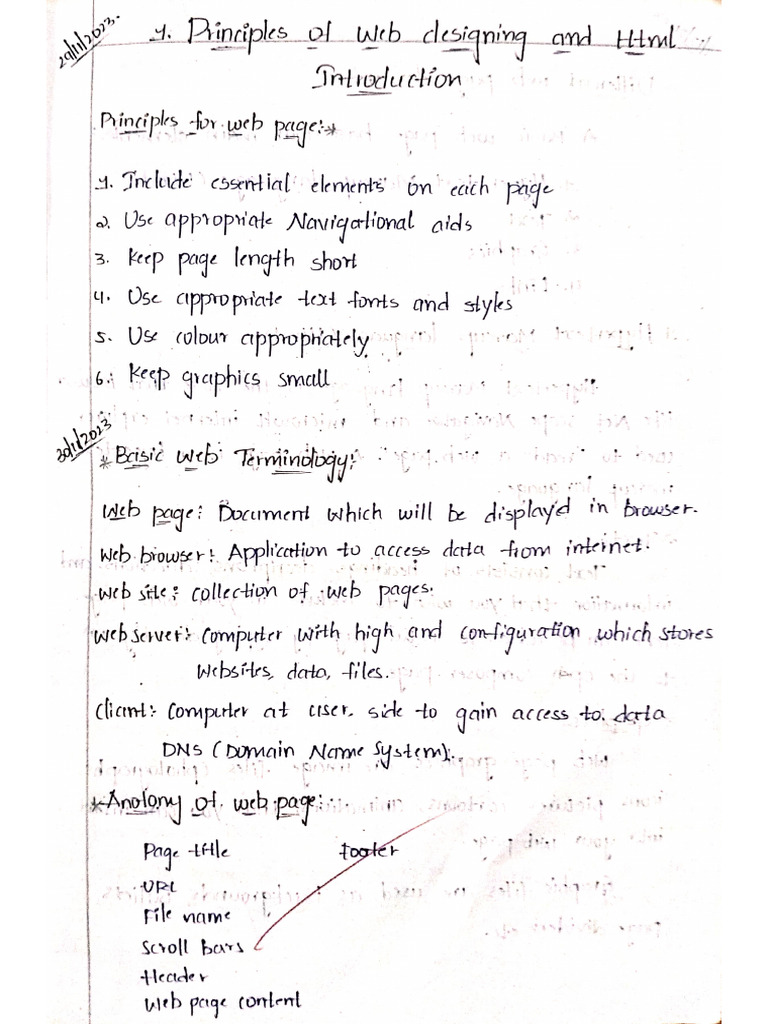 29/11/2023.
1. Principles of Web designing and Html
Introduction
Principles for web page:*
1. Include essential elements on each page
2. Use appropriate Navigational aids
3. Keep page length short
4. Use appropriate text fonts and styles
5. Use colour appropriately
6. Keep graphics small
30/11/2023
* Basic Web Terminology:
Web page: Document which will be display'd in browser.
Web browser: Application to access data from internet.
Web site: collection of web pages.
Web server: computer with high and configuration which stores
Websites, data, files.
Client: computer at user side to gain access to data
DNS (Domain Name System).
* Anotony of web page:
Page title footer
URL
File name
Scroll bars
Header
Web page content